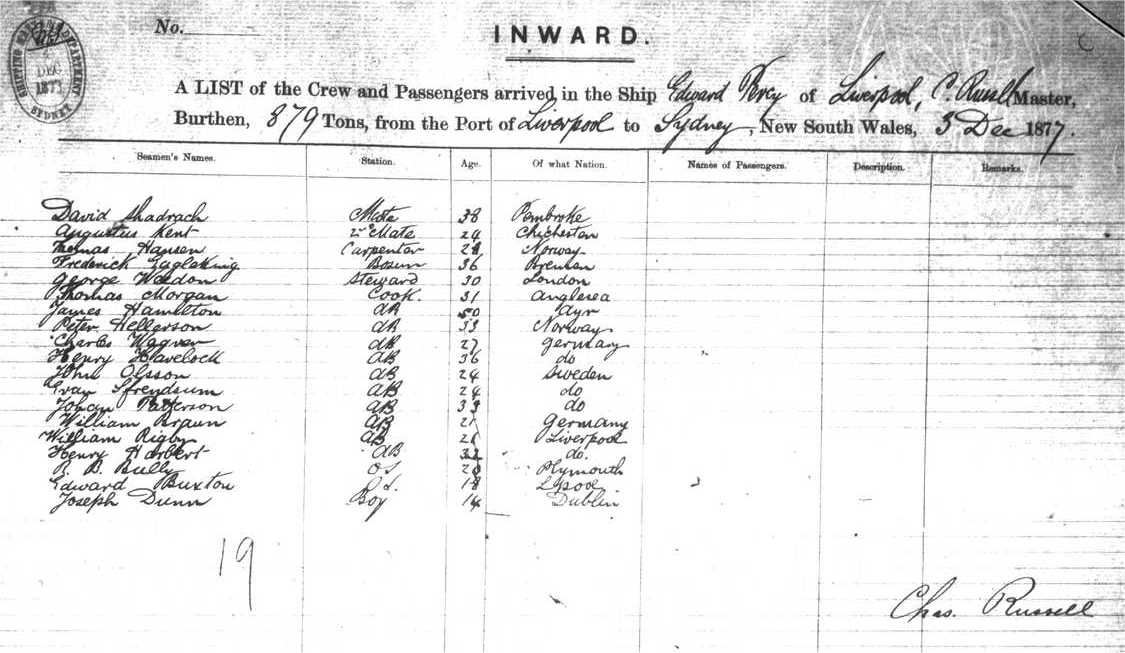 No.
INWARD.
A LIST of the Crew and Passengers arrived in the Ship Edward Percy of Liverpool, C. Russell Master,
Burthen, 879 Tons, from the Port of Liverpool to Sydney, New South Wales, 3 Dec 1877.
Seamen's Names. Station. Age. Of what Nation. Names of Passengers. Description. Remarks.
David Shadrach Mate 38 Pembroke
Augustus Kent 2d Mate 24 Chichester
Thomas Hansen Carpenter Norway
Frederick Bosun 36 Bremen
George Weedon Steward 30 London
Thomas Morgan Cook. 31 Anglesea
James Hamilton AB 50 Ayr
Peter Hellerson AB 33 Norway
Charles Wagner AB 27 Germany
Henry Havelock AB 36 do
John Olsson AB 24 Sweden
Evan AB 24 do
Johan Patterson AB 33 do
William Braun AB 21 Germany
William Rigby AB Liverpool
Henry Harbert AB 32 do.
R. B. Bully OS Plymouth
Edward Buxton O.S. 18 L'pool
Joseph Dunn Boy 14 Dublin
19
Chas. Russell